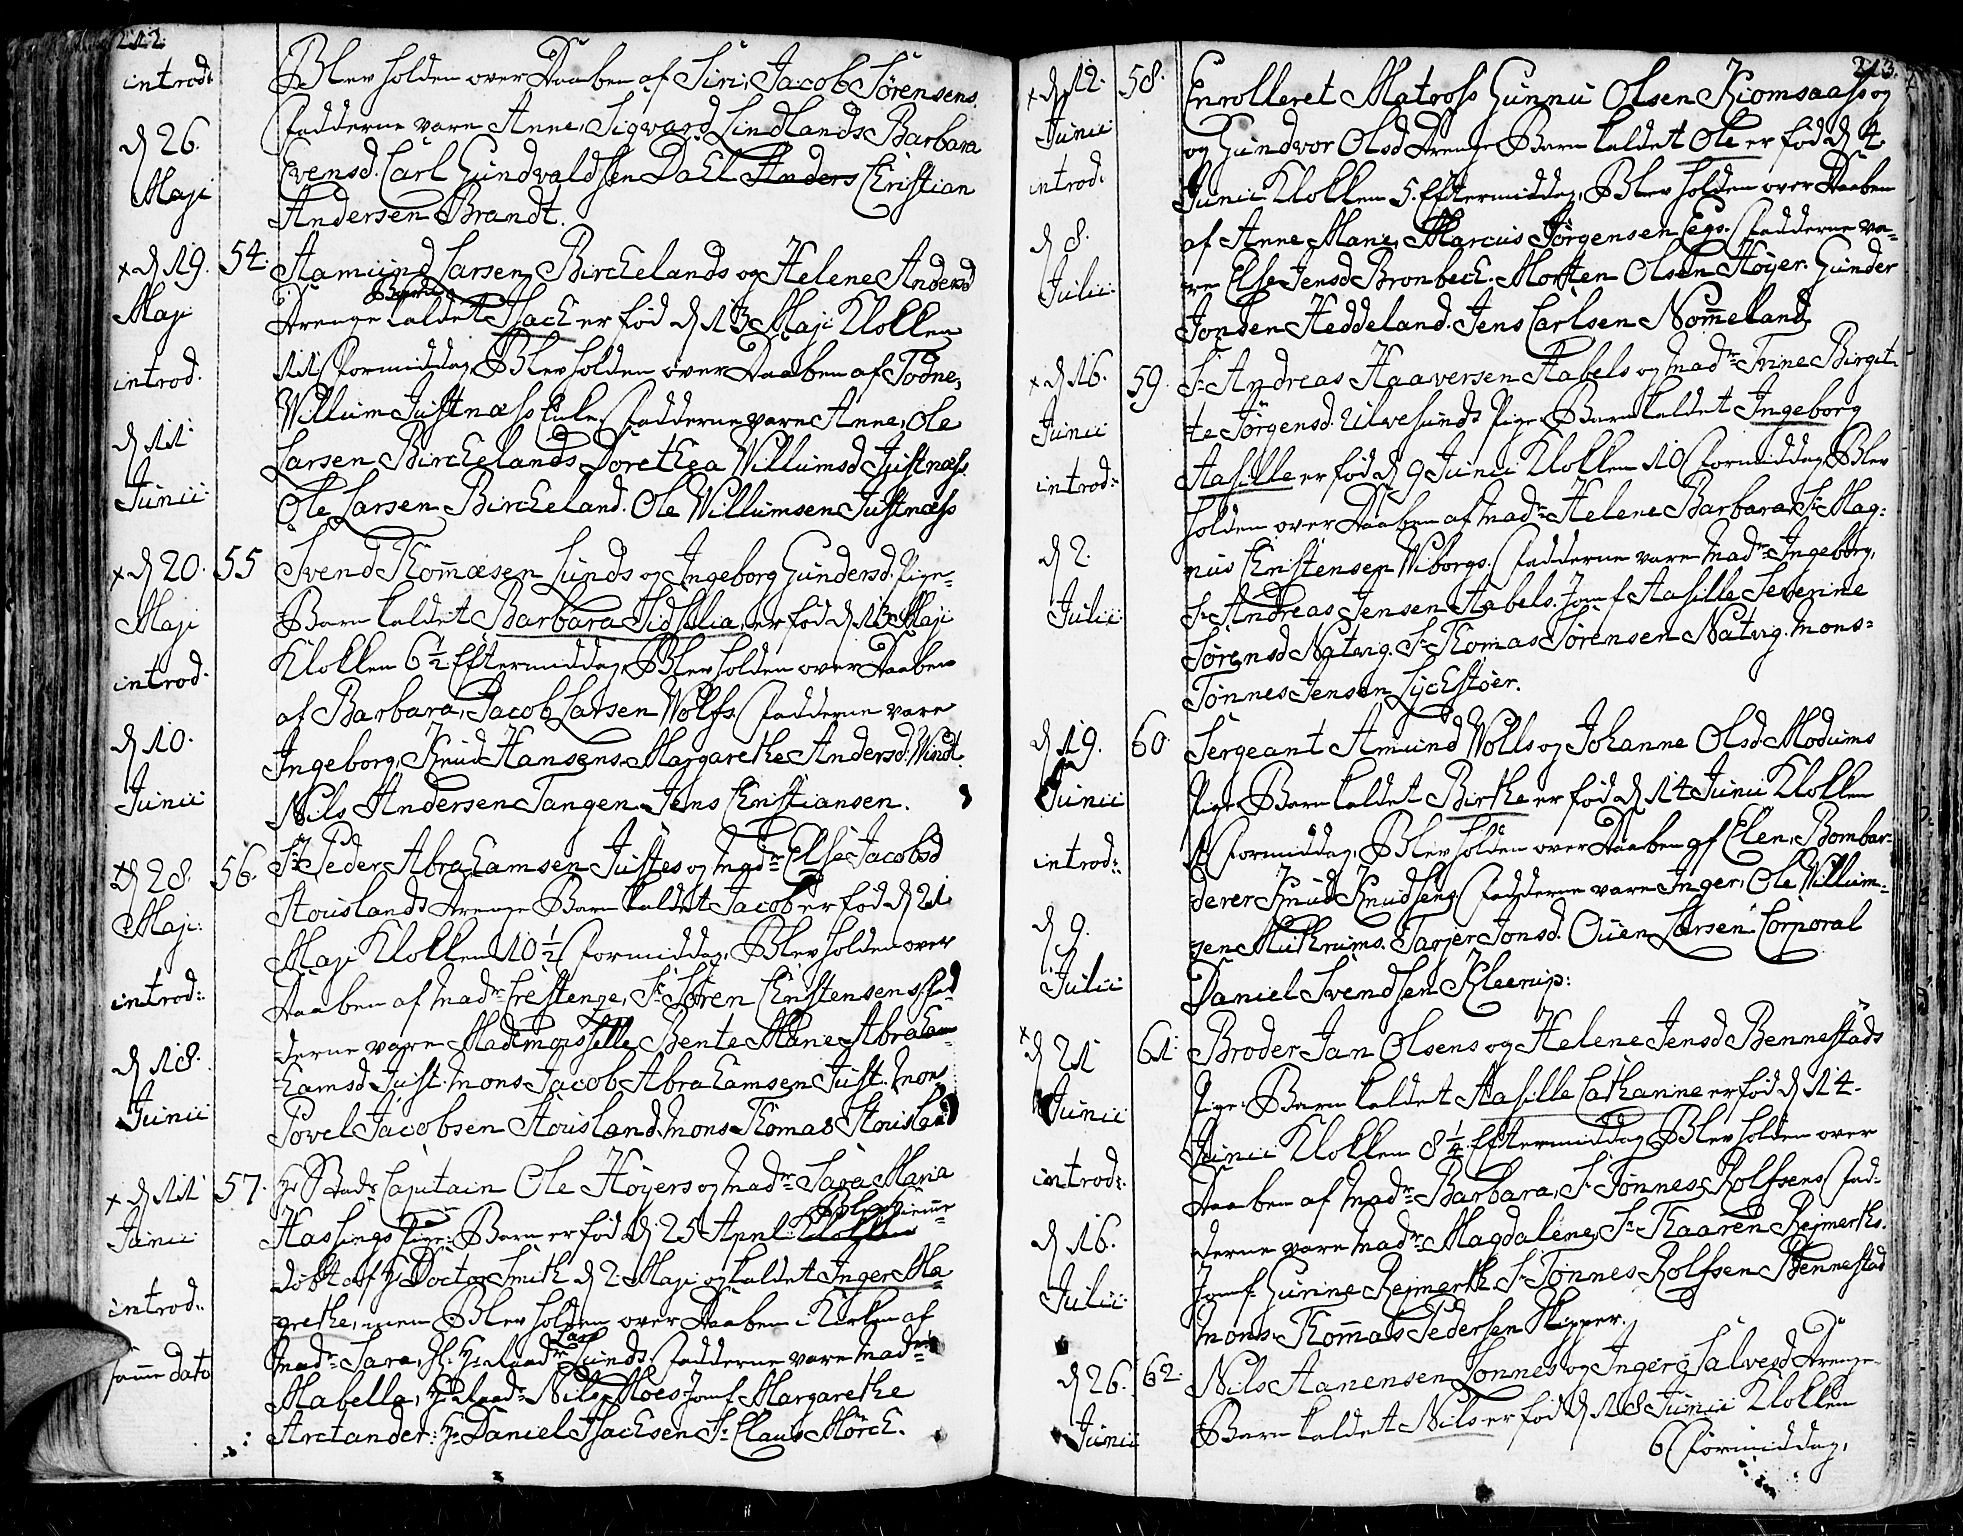 212.
introd:
Blev holden over Daaben af Siri, Jacob Sørensens.
Fadderne vare Anne, Sigvard Lindlands Barbara
d 26. Maji
Evensd. Carl Gundvaldsen Dahl Anders Christian
Andersen Brandt.
x d 19. Maji 54. Aamund Larsen Birchelands og Helene Andersd
Drenge Barn kaldet Isach er fød d 13 Maji Klokken
introd.
11 Formiddag, Blev holden over Daaben af Todne,
Willum Justnæss Enke, Fadderne vare Anne, Ole
d 11 Junii
Larsen Birchelands Dorethea Willumsd Justnæss.
Ole Larsen Bircheland. Ole Willumsen Justnæss
x d 20. Maji 55 Svend Thommæsen Lunds og Ingeborg Gundersd. Pige-
Barn kaldet Barbara Sidsilia, er fød d 13 Maji
introd.
Klokken 6½ Eftermiddag, Blev holden over Daaben
af Barbara, Jacob Larsen Wolfs. Fadderne vare
d 10. Junii
Ingeborg, Knud Hansens. Margarethe Andersd. Windt.
Nils Andersen Tangen. Jens Christiansen.
x d 28. Maji: 56. Sr Peder Abrahamsen Justes og Madme Else Jacobsd
Stouslands Drenge Barn kaldet Jacob er fød d 21
Maji Klokken 10½ Formiddag, Blev holden over
introd:
Daaben af Madme Crestenze, Sr Søren Christensens, Fad-
derne vare Mademoisselle Bente Marie Abraha-
d 18. Junii
hamsd Just. Mons Jacob Abrahamsen Just. Mons
Povel Jacobsen Stousland. Mons Thomas Stousland
x d 11 Junii 57. Hr Stads Capitain Ole Høyers og Madme Sara Maria
Hassings Pige-Barn er fød d 25 April: Klokken Blev hiemme
døbt af Hr Doctor Smith d 2 Maji og kaldet Inger Ma-
introd:
grethe, men Blev holden over Daaben i Kirken af
Madme Sara, Lars Lunds. Fadderne vare Madme
samme dato
Mabella, Nils Moes Jomf. Margarethe
Arctander: Hr Daniel Isachsen Sr Claus Mørch.
213.
x d 12. Junii 58. Enrolleret Matross Gunnu Olsen Kiomsaass og
og Gundvor Olsd Drenge Barn kaldet Ole er fød d 4
introd:
Junii Klokken 5. Eftermiddag, Blev holden over Daaben
d 8. Julii:
af Anne Marie, Marcus Jørgensen Eegs. Fadderne va-
re Else Jensd Bronbech. Morten Olsen Høyer. Gunder
Jonsen Heddeland. Jens Carlsen Nommeland.
x d 16. Junii 59. Sr Andreas Haaversen Aabels og Madme Trine Birgit-
te Jørgensd. Ulvesunds Pige-Barn kaldet Ingeborg
introd:
Aasille er fød d 9 Junii Klokken 10 Formiddag, Blev
holden over Daaben af Madme Helene Barbara, Sr Mag-
d 2. Julii:
nus Christensen Wiborgs. Fadderne vare Madme Ingeborg,
Sr Andreas Jensen Aabels. Jomf Aasille Severine
Sørensd Natvig. Sr Thomas Sørensen Natvig. Mons-
Tønnes Jensen Lyckstøer.
d 19. Junii 60. Sergeant Amund Wolls og Johanne Olsd Modums
Pige-Barn kaldet Birthe er fød d 14 Junii Klokken
introd:
Formiddag, Blev holden over Daaben af Elen, Bombar-
derer Knud Knudsens Fadderne vare Inger, Ole Willum-
d 9. Julii
sen Jonsd. Ouen Larsen Corporal
Daniel Svendsen Kleerup:
x d 21 Junii 61. Broder Jan Olsens og Helene Jensd Bennestads
Pige-Barn kaldet Aasille Catharine er fød d 14.
Junii Klokken 8½ Eftermiddag, Blev holden over
introd:
Daaben af Madme Barbara, Sr Tønnes Rolfsens Fad-
d 16. Julii:
derne vare Madme Magdalene, Sr Kaaren Rejmerths.
Jomf. Gurine Rejmerth. Sr Tønnes Rolfsen Bennestad
Mons. Thommas Pedersen Skipper.
d 26. Junii 62. Nils Aanensen Lonnes og Inger Salvesd Drenge-
Barn kaldet Nils er fød d 18 Junii Klokken
6 Formiddag,